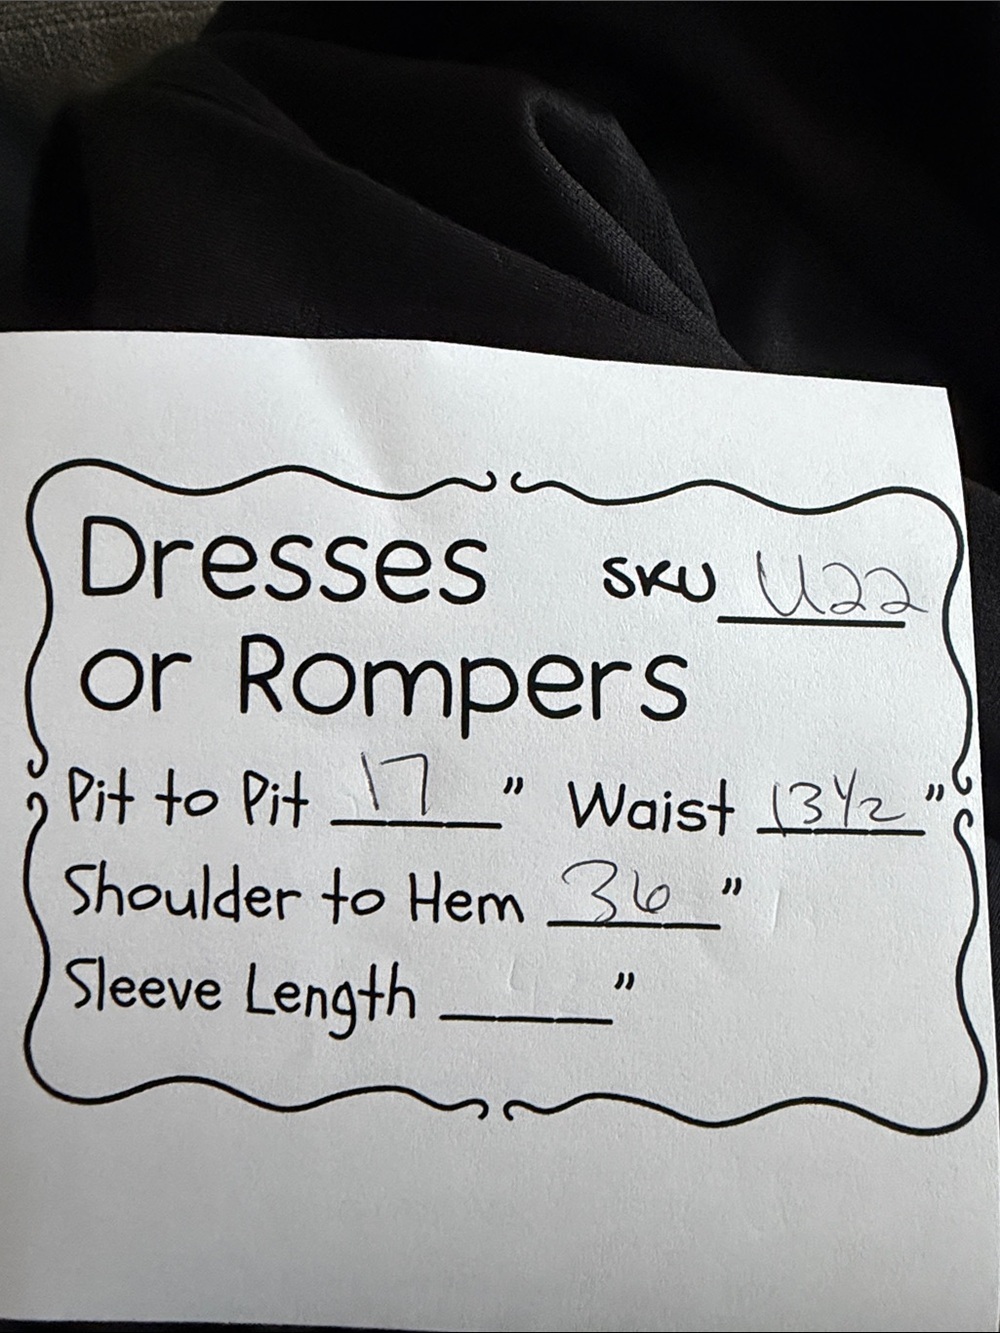 Dresses SKU U22
or Rompers
Pit to Pit 17 " Waist 13 1/2 "
Shoulder to Hem 36 "
Sleeve Length ______ "